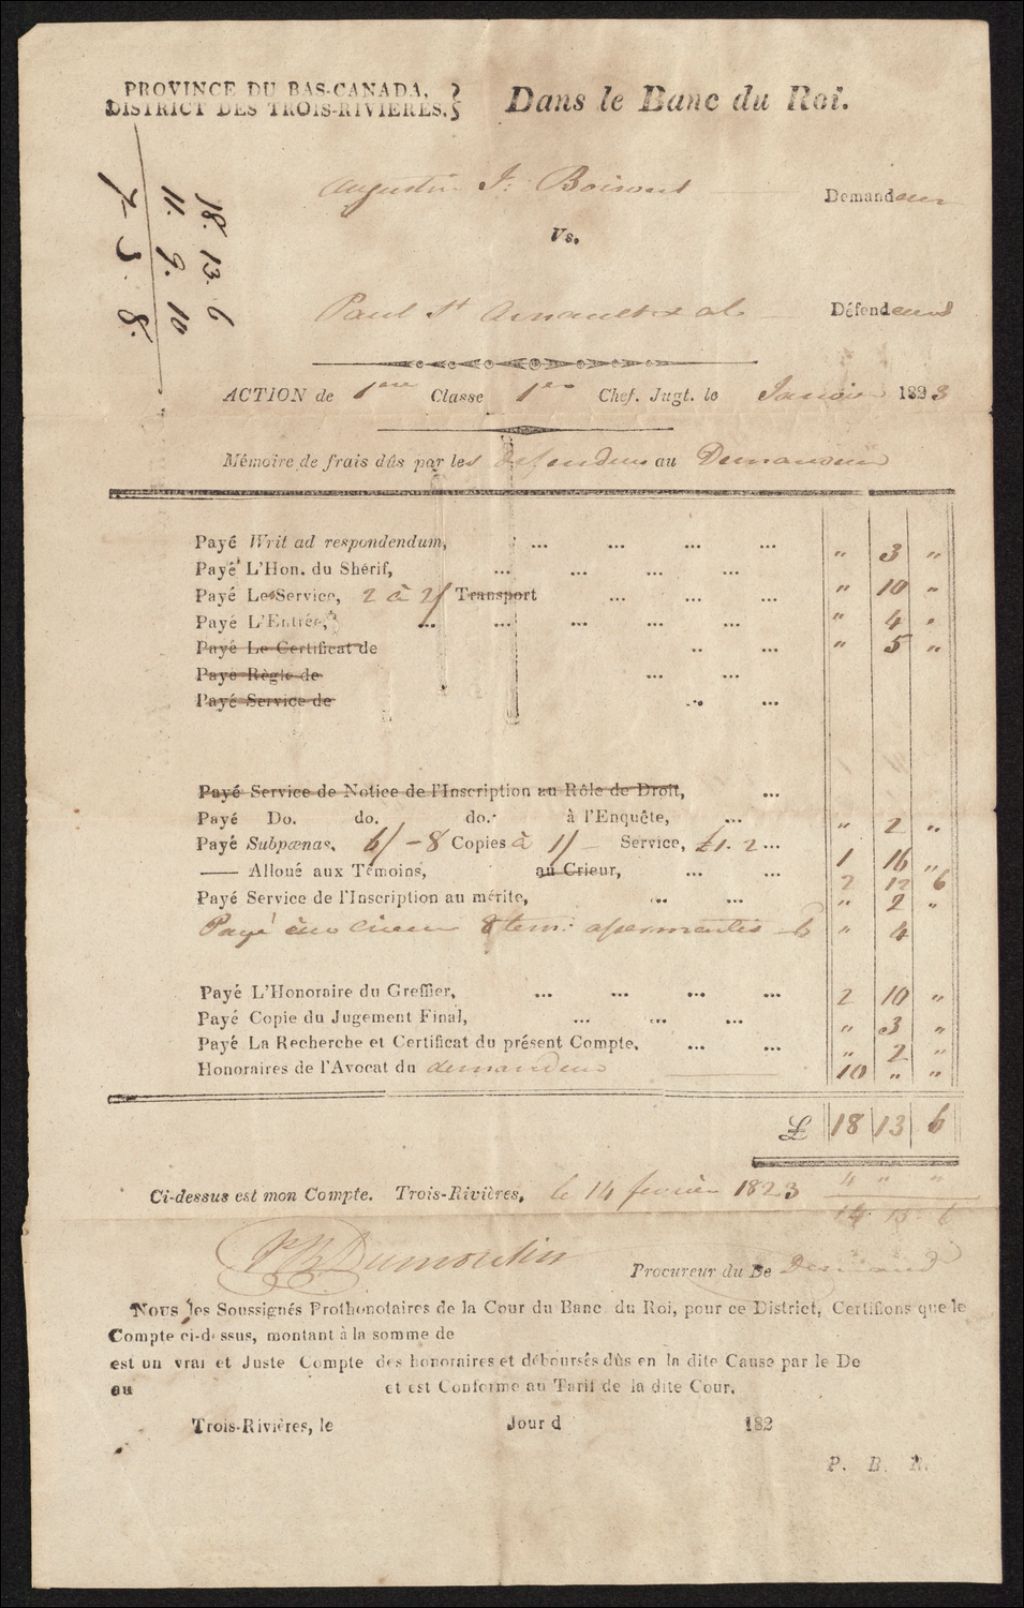 PROVINCE DU BAS-CANADA,
DISTRICT DES TROIS-RIVIERES.
Dans le Banc du Roi.
18. 13. 6
11. 9. 10
7 3. 8.
Augustin J: Demandeur
Vs.
Paul St Arnault & al Défendeurs
ACTION de 1ere Classe 1er Chef. Jugt. le Janvier 1823
Mémoire de frais dûs par les defendeurs au Demandeur
Payé Writ ad respondendum, ... ... ... ... " 3 "
Payé L'Hon. du Shérif, ... ... ... ... " 10 "
Payé Les Service, 2 à 2/ Transport ... ... ... " 4 "
Payé L'Entrée, ... ... ... ... ... " 5 "
Payé Le Certificat de .. ...
Payé Règle de ... ...
Payé Service de ... ...
Payé Service de Notice de l'Inscription au Rôle de Droit, ...
Payé Do. do. do. à l'Enquête, ... " 2 "
Payé Subpœnas, 6/ - 8 Copies à 1/ - Service, £1. 2 ... 1 16 "
—— Alloué aux Témoins, au Crieur, ... ... 2 12 6
Payé Service de l'Inscription au mérite, ... ... " 2 "
Payé 8 tem: 6 " 4
Payé L'Honoraire du Greffier, ... ... ... ... 2 10 "
Payé Copie du Jugement Final, ... ... ... " 3 "
Payé La Recherche et Certificat du présent Compte, ... ... " 2 "
Honoraires de l'Avocat du demandeur 10 " "
£ 18 13 6
4 " "
14 13 6
Ci-dessus est mon Compte. Trois-Rivières, le 14 fevrier 1823
Dumoulin
Procureur du De Demand
Nous les Soussignés Prothonotaires de la Cour du Banc du Roi, pour ce District, Certifions que le
Compte ci-dessus, montant à la somme de
est un vrai et Juste Compte des honoraires et déboursés dûs en la dite Cause par le De
au et est Conforme au Tarif de la dite Cour.
Trois-Rivières, le Jour d 182
P. B. R.